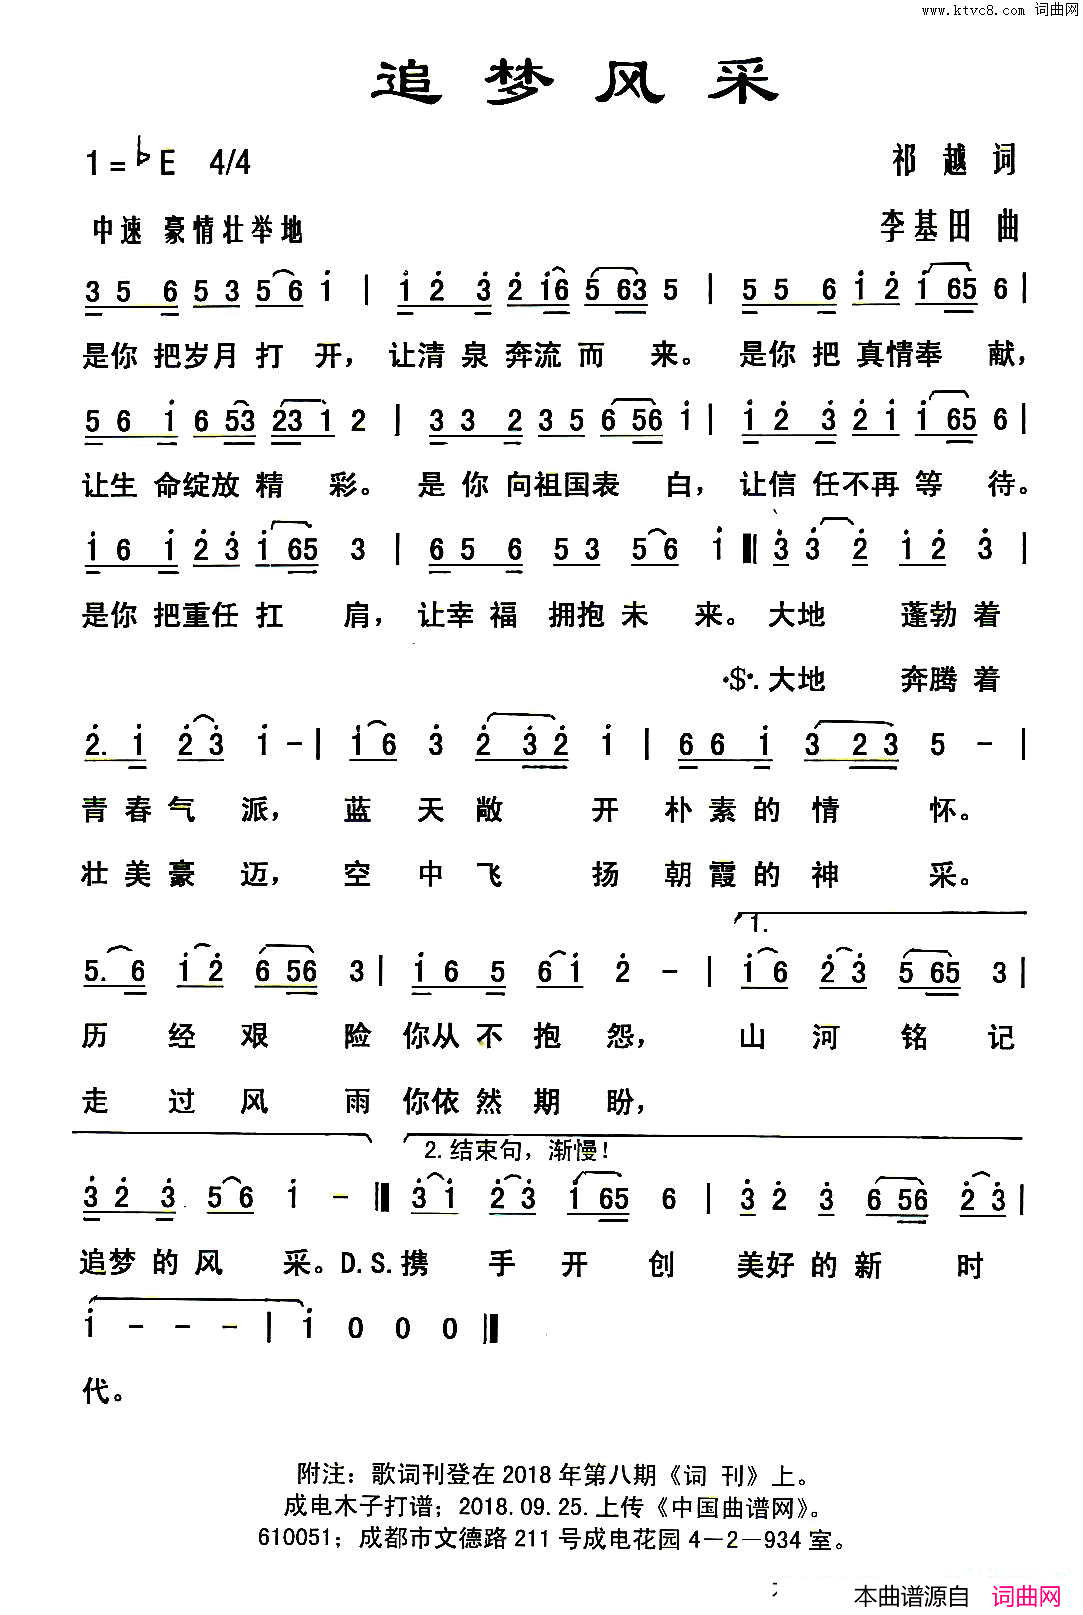 www.ktvc8.com 词曲网
追梦风采
1=♭E 4/4 祁越词
中速 豪情壮举地 李基田 曲
3 5 6 5 3 5 6 i | i 2 3 2 i6 5 63 5 | 5 5 6 i 2 i 65 6 |
是你 把岁月 打 开， 让清 泉 奔流 而 来。 是你 把 真情奉 献，
5 6 i 6 53 23 1 2 | 3 3 2 3 5 6 56 i | i 2 3 2 i i 65 6 |
让生 命绽放 精 彩。 是 你 向祖国表 白， 让信 任不再 等 待。
i 6 i 2 3 i 65 3 | 6 5 6 5 3 5 6 i ‖ 3 3 2 i 2 3 |
是你 把重任 扛 肩， 让幸 福 拥抱 未 来。 大地 蓬勃 着
·$·. 大地 奔腾 着
2. i 2 3 i - | i 6 3 2 32 i | 6 6 i 3 23 5 - |
青 春 气 派， 蓝 天 敞 开 朴 素 的 情 怀。
壮 美 豪 迈， 空 中 飞 扬 朝 霞 的 神 采。
1.
5. 6 i 2 6 56 3 | i 6 5 6 i 2 - | i 6 2 3 5 65 3 |
历 经 艰 险 你从 不 抱 怨， 山 河 铭 记
走 过 风 雨 你依 然 期 盼，
2. 结束句，渐慢！
3 2 3 5 6 i - ‖ 3 i 2 3 i 65 6 | 3 2 3 6 56 2 3 |
追梦 的 风 采。D.S.携 手 开 创 美好 的 新 时
i - - - | i 0 0 0 ‖
代。
附注：歌词刊登在 2018 年第八期《词 刊》上。
成电木子打谱；2018.09.25.上传《中国曲谱网》。
610051；成都市文德路 211 号成电花园 4－2－934 室。
本曲谱源自 词曲网